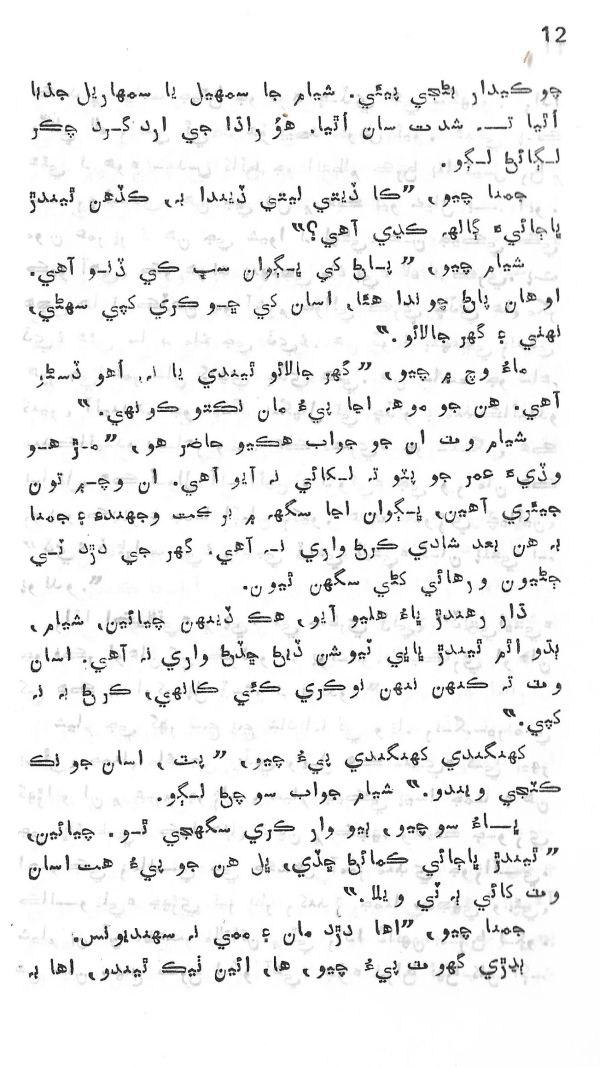 12
چوڪيدار بڻجي پيئي. شيام جا سمهيل يا سمهاريل جذبا
اُٿيا تہ شدت سان اُٿيا. هوُ راڌا جي ارد گرد چڪر
لڳائڻ لڳو.
جمنا چيو، ”ڪا ڏيتي ليتي ڏيندا بہ، ڪڏهن ٿيندڙ
ڀاڄائيءَ ڳالهہ ڪڍي آهي؟“
شيام چيو، ”پاڻ کي ڀڳوان سڀ ڪي ڏنو آهي.
اوهان پاڻ چوندا هئا، اسان کي ڇوڪري کپي سهڻي،
ٺهڻي ۽ گهر جالائو.“
ماءُ وچ ۾ چيو، ”گهر جالائو ٿيندي يا نہ، اهو ڏسڻو
آهي. هن جو موهہ اڃا پيءُ مان نڪتو ڪونهي.“
شيام وٽ ان جو جواب هڪيو حاضر هو، ”مڙهو
وڏيءَ عمر جو پٽو تہ لڪائي نہ آيو آهي. ان وچ ۾ تون
جيئري آهين، ڀڳوان اڃا سگهہ ۾ برڪت وجهندءِ ۽ جمنا
بہ هن بعد شادي ڪرڻ واري نہ آهي. گهر جي درد ٽي
ڄڻيون ورهائي کڻي سگهن ٿيون.
ڌار رهندڙ ڀاءُ هليو آيو، هڪ ڏينهن چيائين، شيام،
ٻڌو اٿم ٿيندڙ ڀاڀي ٽيوشن ڏيڻ ڇڏڻ واري نہ آهي. اسان
وٽ تہ ڪنهن ننهن نوڪري ڪئي ڪانهي، ڪرڻ بہ نہ
کپي.“
کهنگهندي کهنگهندي پيءُ چيو، ”پٽ، اسان جو نڪ
ڪٽجي ويندو.“ شيام جواب سوچڻ لڳو.
ڀاءُ سوچيو، ٻيو وار ڪري سگهجي ٿو. چيائين،
”ٿيندڙ ڀاڄائي ڪمائڻ ڇڏي، پل هن جو پيءُ هت اسان
وٽ کائي بہ ٽي ويلا.“
جمنا چيو، ”اها درد مان ۽ ممي نہ سهنديونس.
ٻڍڙي گهوٽ پيءُ چيو، ها، ائين ٺيڪ ٿيندو، اها بہ